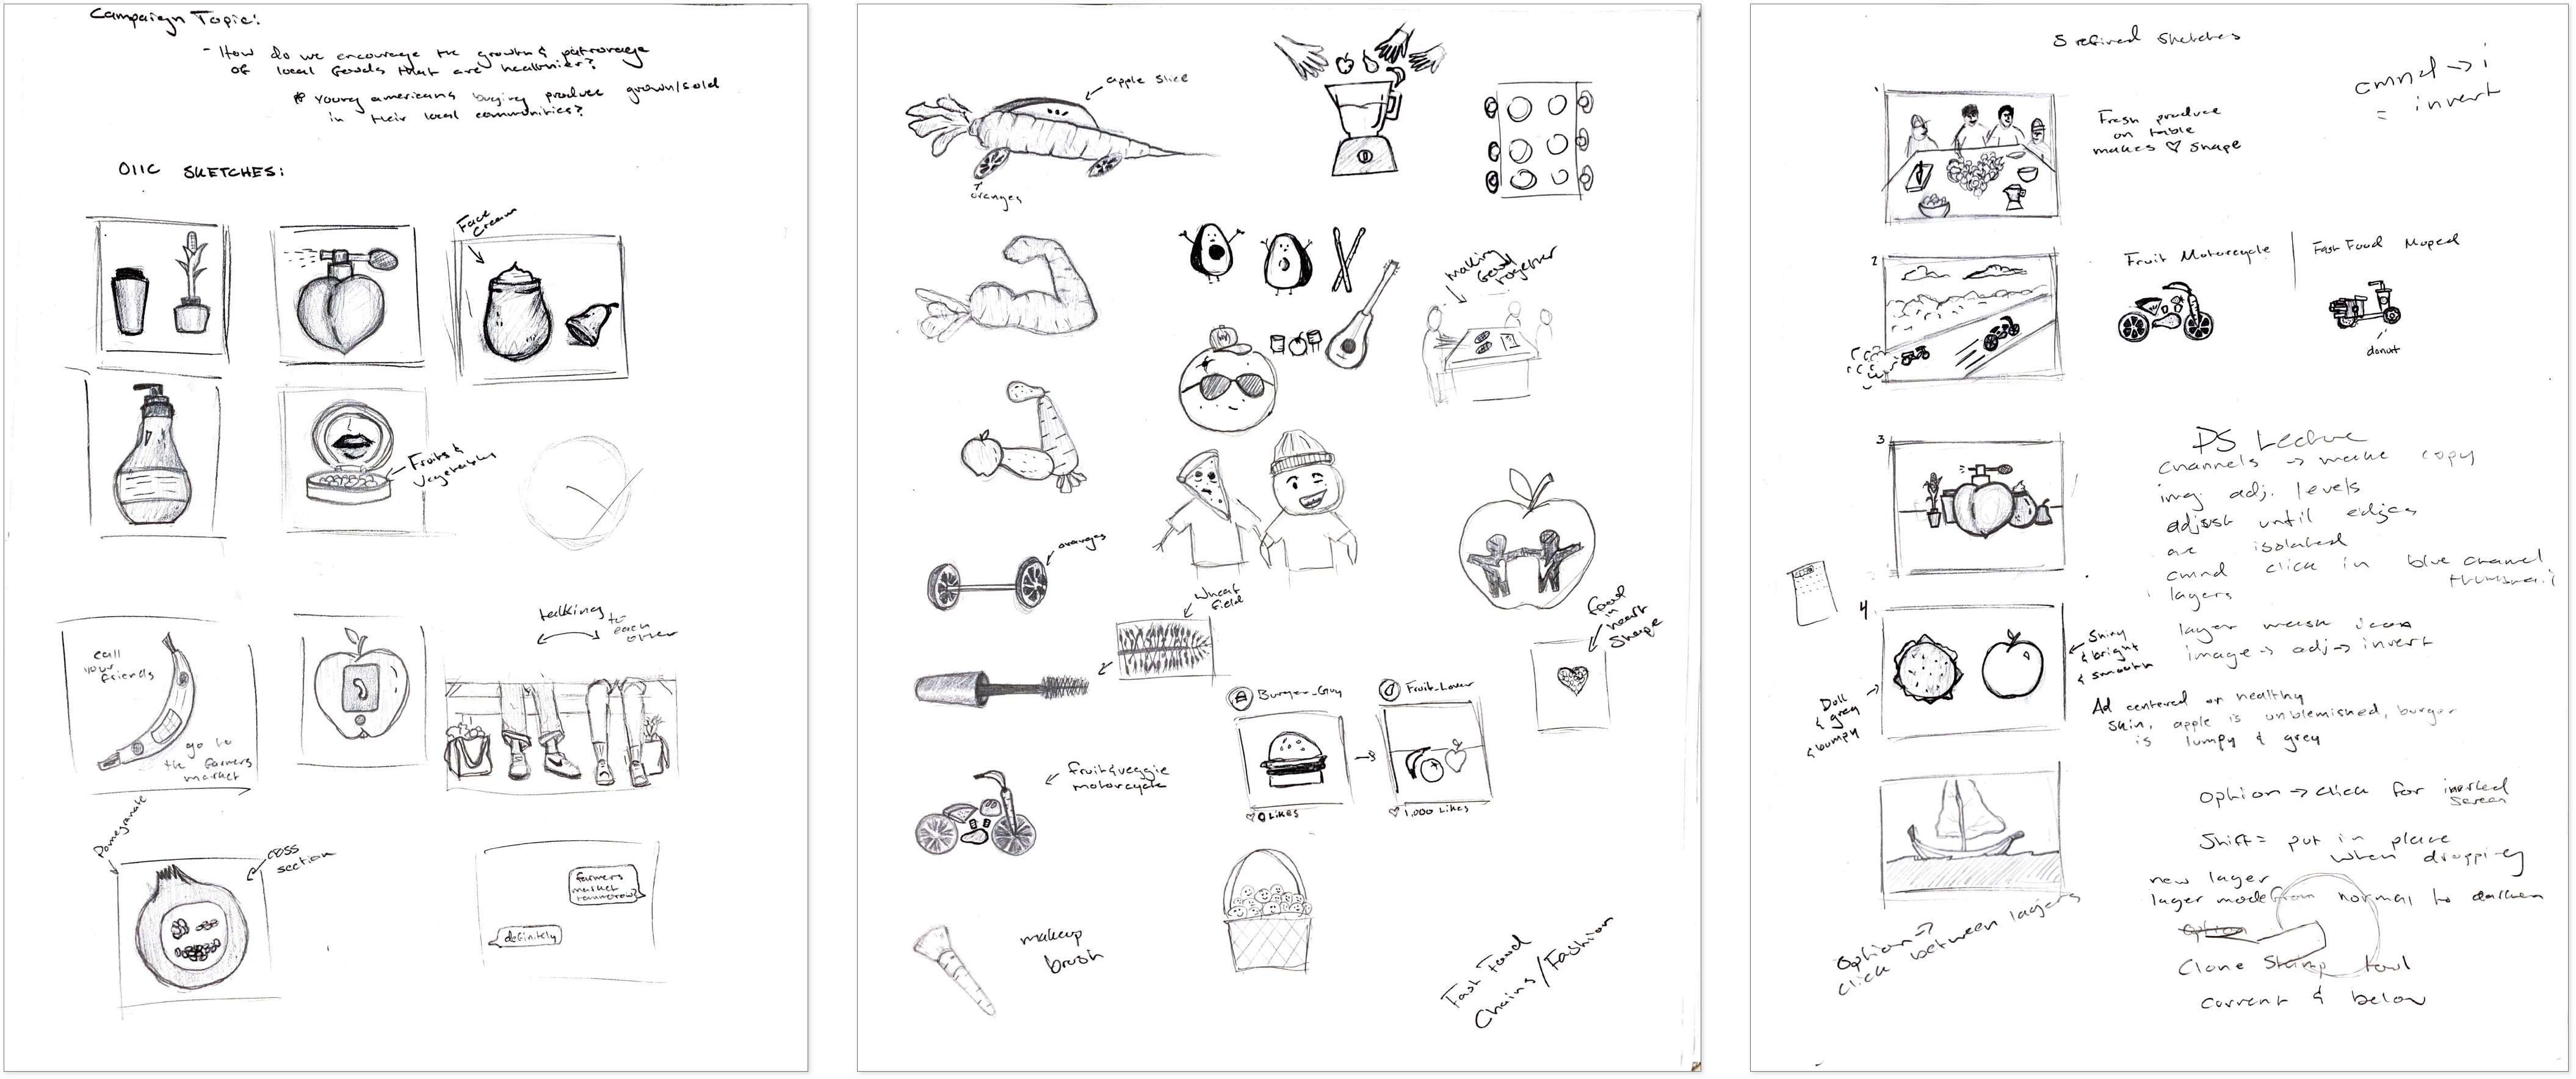 Campaign Topic:
- How do we encourage the growth & patronage
of local foods that are healthier?
* Young americans buying produce grown/sold
in their local communities?
OIIC SKETCHES:
Face
Cream
Fruits &
Vegetables
call
your
friends
go to
the farmers
market
talking
to
each
other
Pomegranate
cross
section
farmers
market
tommorow?
definitely
apple slice
oranges
making
food
together
oranges
wheat
field
food
in
heart
shape
Burger_Guy
Fruit_Lover
0 Likes
1,000 Likes
fruit & veggie
motorcycle
makeup
brush
Fast Food
Chains/Fashion
5 refined sketches
cmnd → i
= invert
1
Fresh produce
on table
makes ♡ shape
2
Fruit Motorcycle
Fast Food Moped
donut
3
PS Lecture
channels → make copy
img. adj. levels
adjust until edges
are isolated
cmnd click in blue channel
thumbnail
layers
4
layer mask icon
image → adj → invert
Shiny
& bright
& smooth
Dull
& grey
& bumpy
Ad centered on healthy
skin, apple is unblemished, burger
is lumpy & grey
option → click for inverted
screen
Shift = put in place
when dragging
new layer
layer mode from normal to darken
option
Clone Stamp tool
current & below
option →
click between layers